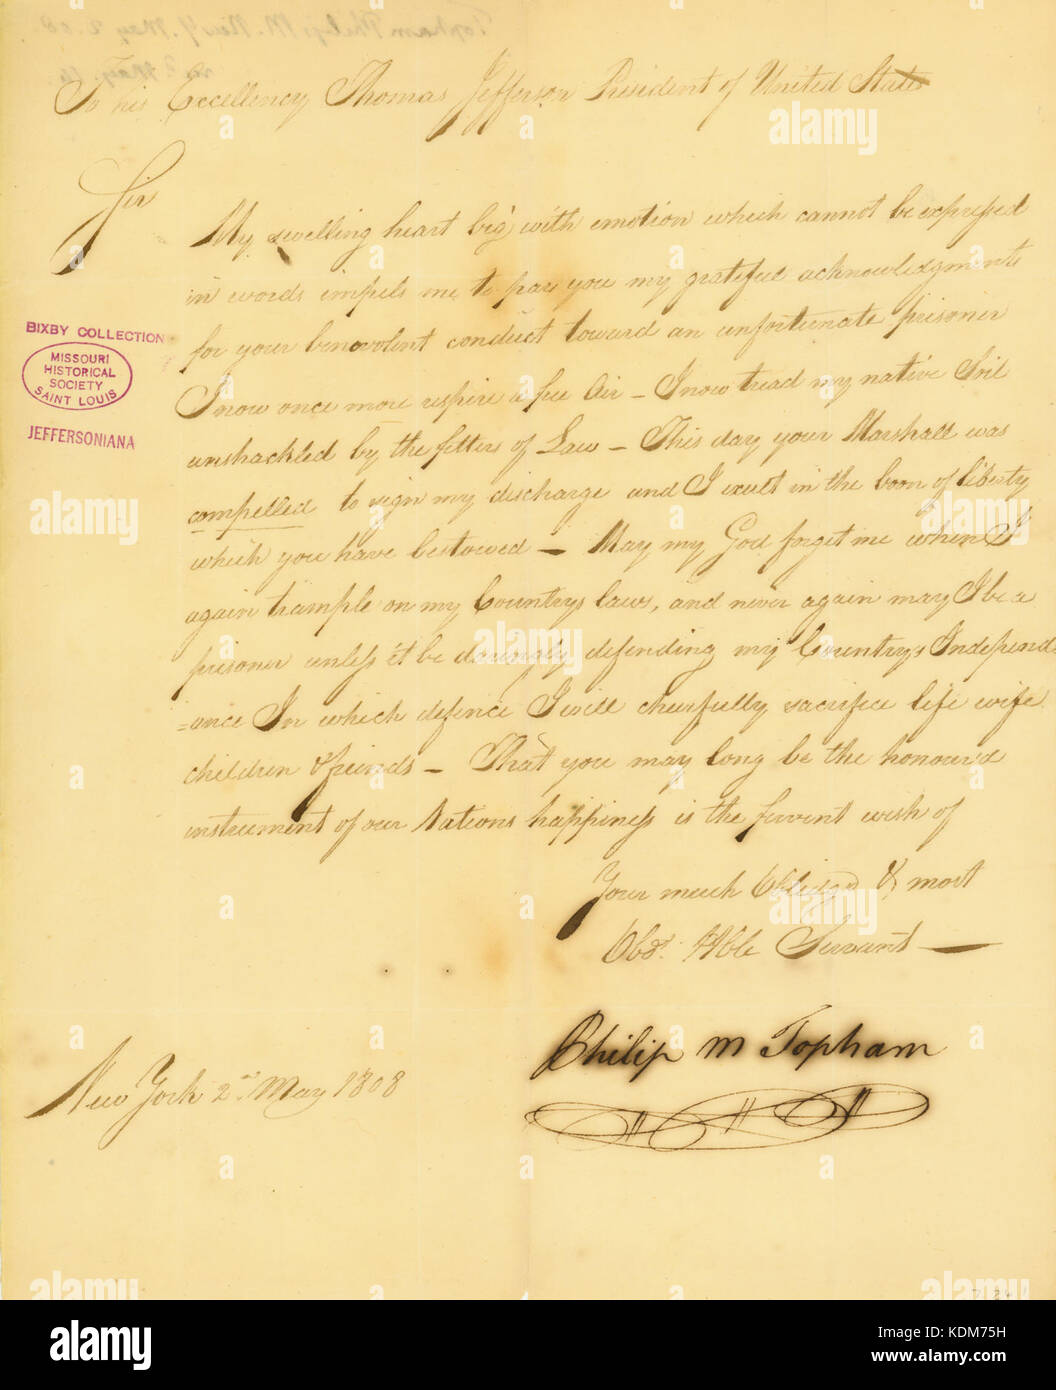 Topham Philip M. New Y. May 2. 08.
recd May. 14
To his Excellency Thomas Jefferson President of United States
Sir
My swelling heart big with emotion which cannot be expressed
in words impels me to pay you my grateful acknowledgments
for your benevolent conduct toward an unfortunate prisoner
I now once more respire a free Air — I now tread my native Soil
unshackled by the fetters of Law — This day your Marshall was
compelled to sign my discharge and I exult in the boon of liberty
which you have bestowed — May my God forget me when I
again trample on my Countrys laws, and never again may I be a
prisoner unless it be daringly defending my Countrys Independ-
=ance In which defence I will chearfully sacrifice life wife
children & friends — That you may long be the honour'd
instrument of our Nations happiness is the fervent wish of
Your much Obliged & most
Obdt. Hble Servant —
Philip M Topham
New York 2nd May 1808
BIXBY COLLECTION
MISSOURI
HISTORICAL
SOCIETY
SAINT LOUIS
JEFFERSONIANA
alamy
Image ID: KDM75H
www.alamy.com